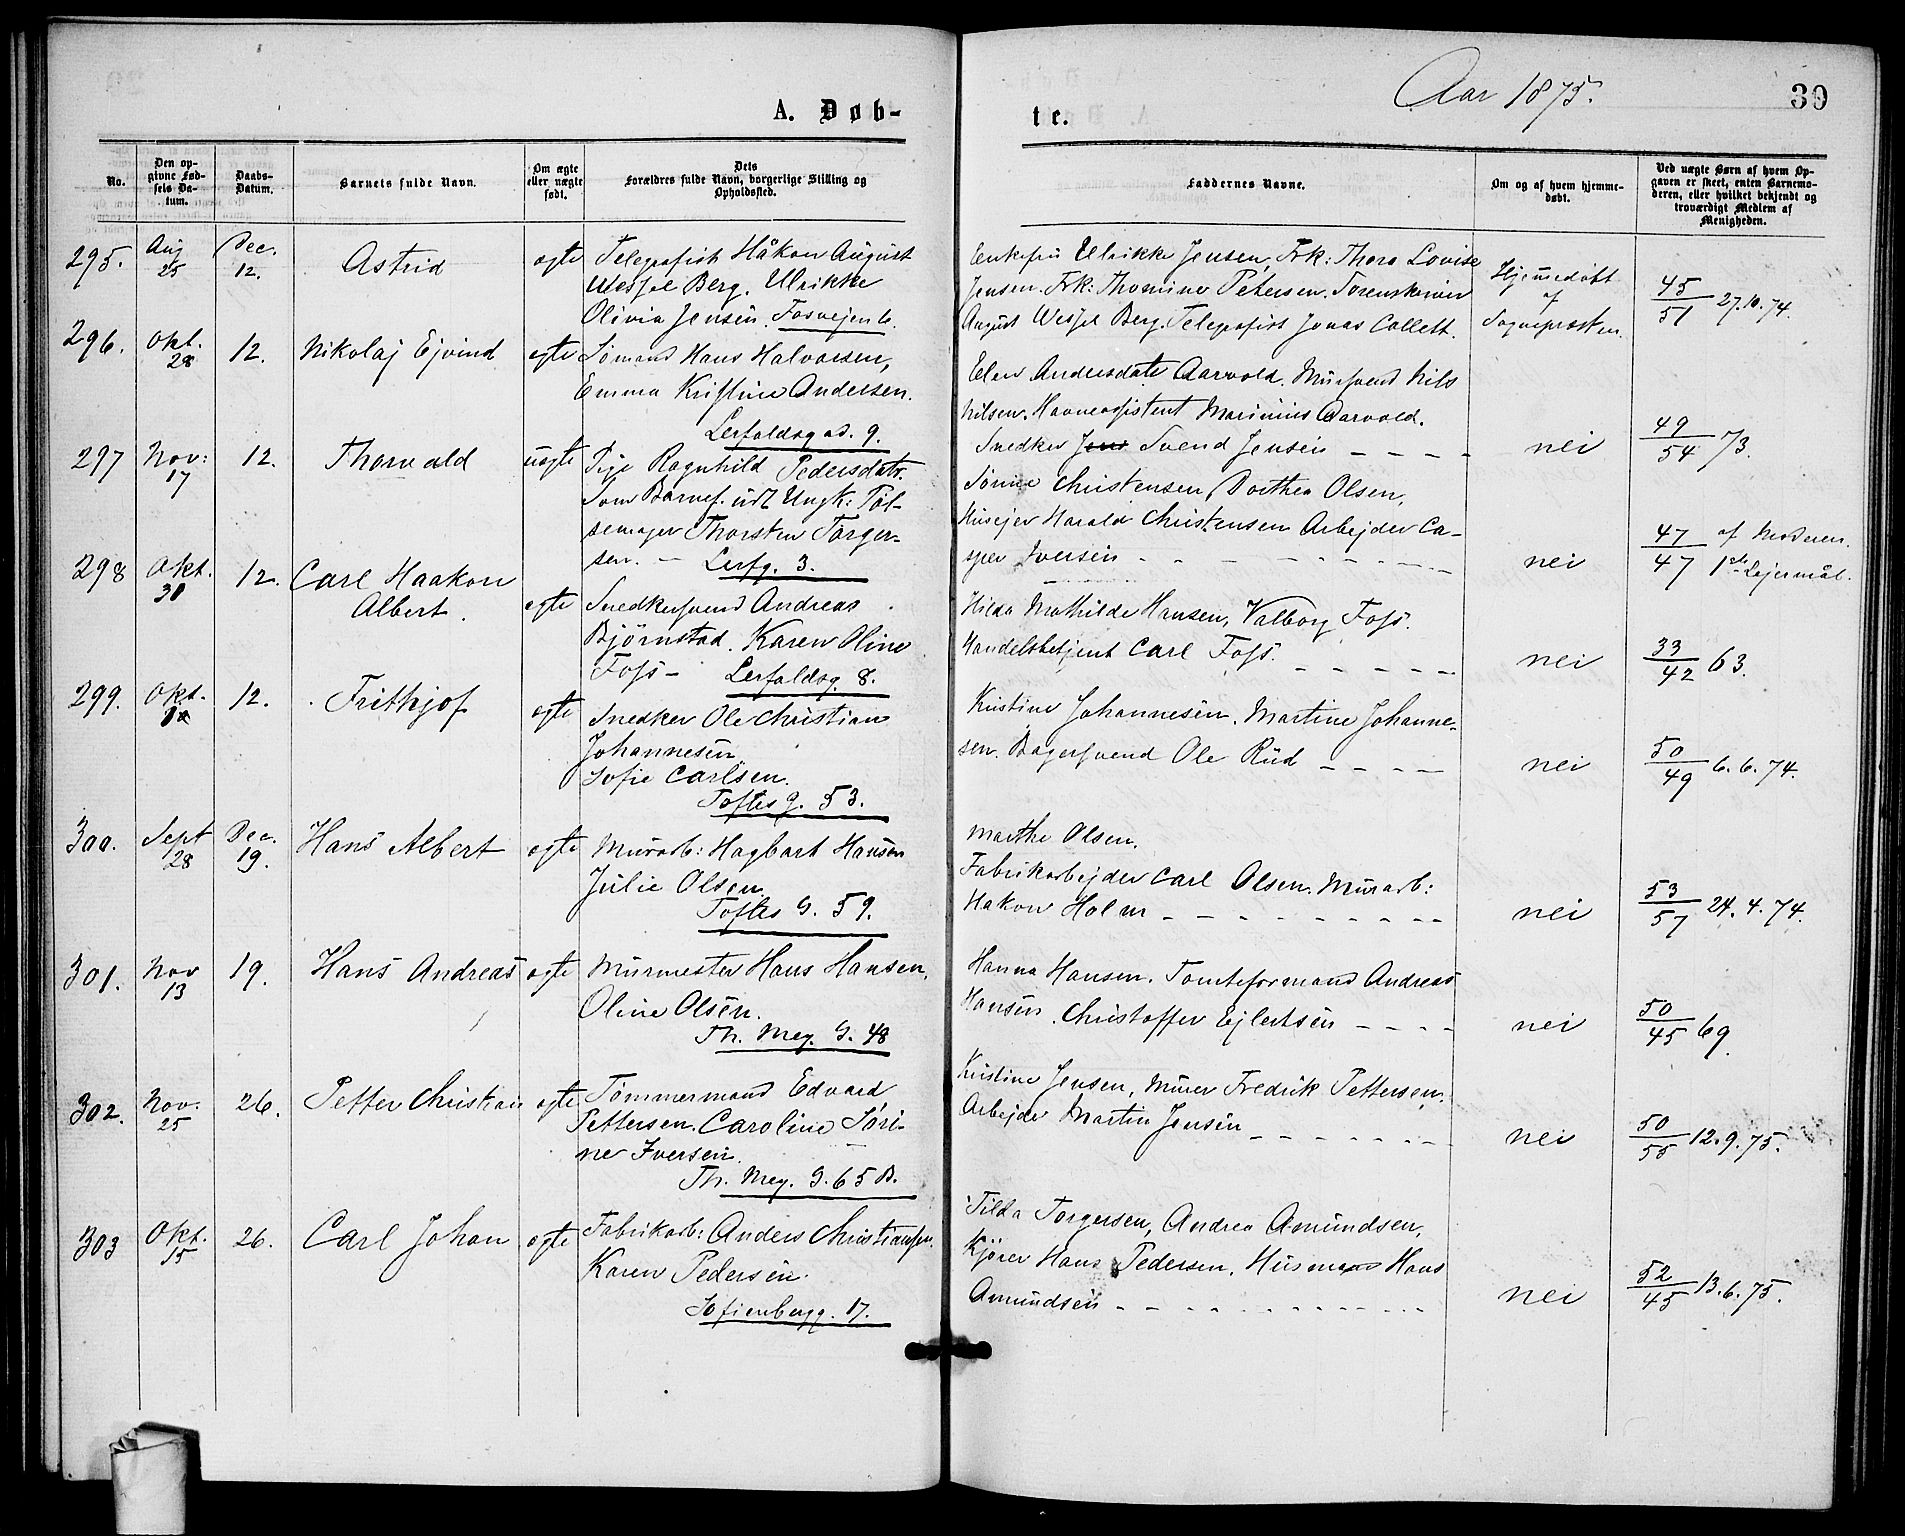 Aar 1875.
39
A. Døb-
te.
No.
Den op-
givne Fød-
sels Da-
tum.
Daabs-
Datum.
Barnets fulde Navn.
Om ægte
eller uægte
født.
Dets
Forældres fulde Navn, borgerlige Stilling og
Opholdssted.
Faddernes Navne.
Om og af hvem hjemme-
døbt.
Ved uægte Børn af hvem Op-
gaven er skeet, enten Barnemo-
deren, eller hvilket bekjendt og
troværdigt Medlem af
Menigheden.
295. Aug 25 Dec. 12. Astrid ægte Telegrafist Håkon August
Wessel Berg. Ulrikke
Olivia Jensen. Fosvejen 6.
Enkefru Ulrikke Jensen, Frk: Thora Lovise
Jensen. Frk: Thomine Petersen.
August Wessel Berg. Telegrafist Jonas Collett.
Hjemmedøbt
af
Sognepresten.
45/51 27.10.74.
296. Okt. 28 12. Nikolaj Ejvind ægte Sømand Hans Halvorsen,
Emma Kristine Andersen.
Lerfaldsgad. 9.
Elen Andersdatr Aarvold. Mursvend Nils
Nilsen. Havneassistent Marinius Aarvold.
Snedker Jens Svend Jensen - - - - nei 49/54 73.
297 Nov: 17 12. Thorvald uægte Pige Ragnhild Pedersdatr.
Som Barnef. udl Ungk: Pøl-
semager Thorsten Torger-
sen. - Lerfg. 3.
Sørine Christensen, Dorthea Olsen,
Husejer Harald Christensen Arbejder Ca-
sper Iversen - - - - nei 47/47 af Moderen.
1ste Lejermål.
298 Okt. 30 12. Carl Haakon
Albert. ægte Snedkersvend Andreas
Bjørnstad. Karen Oline
Foss - Lerfaldsg. 8.
Hilda Mathilde Hansen, Valborg Foss.
Handelsbetjent Carl Foss. - - - - - nei 33/42 63.
299. Okt. 12. Frithjof ægte Snedker Ole Christian
Johannesen
Sofie Carlsen.
Toftes g. 53.
Kristine Johannesen. Martine Johanne-
sen. Bagersvend Ole Rud - - - - nei 50/49 6.6.74.
300. Sept 28 Dec. 19. Hans Albert ægte Murarb: Hagbart Hansen
Julie Olsen.
Toftes G. 59.
Marthe Olsen.
Fabrikarbejder Carl Olsen. Murarb:
Hakon Holm - - - - nei 53/57 24.4.74.
301. Nov 13 19. Hans Andreas ægte Murmester Hans Hansen,
Oline Olsen.
Th. Mey. G. 48
Hanna Hansen. Tomteformand Andreas
Hansen. Christoffer Ejlertsen - - - - nei 50/45 69.
302. Nov. 25 26. Petter Christian ægte Tømmermand Edvard
Pettersen. Caroline Søri-
ne Iversen.
Th. Mey. G. 65 B.
Kristine Jensen, Murer Fredrik Pettersen.
Arbejder Martin Jensen - - - - nei 50/55 12.9.75.
303 Okt. 15 26. Carl Johan ægte Fabrikarb: Anders Christiansen.
Karen Pedersen.
Sofienbergg. 17.
Tilda Torgersen, Andrea Amundsen,
Kjører Hans Pedersen, Husmand Hans
Amundsen - - - - nei 52/45 13.6.75.